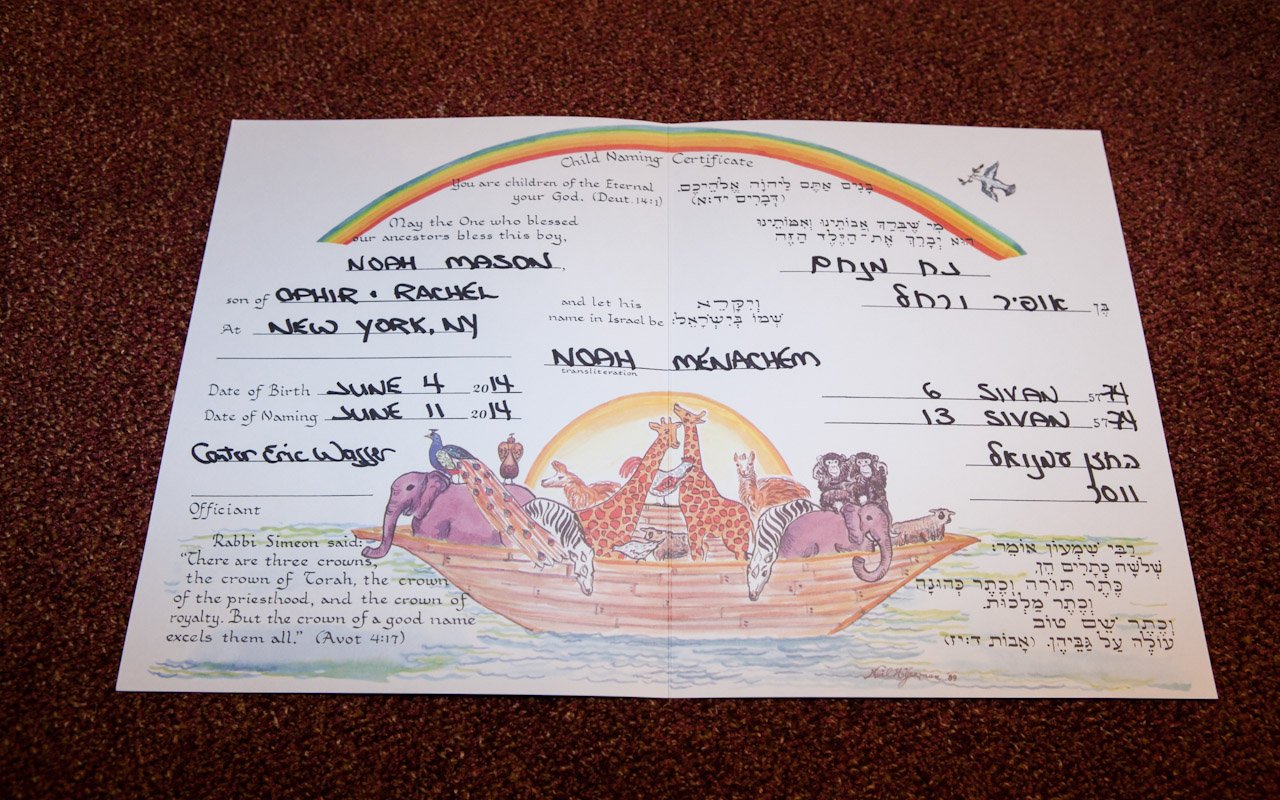 Child Naming Certificate
You are children of the Eternal
your God. (Deut. 14:1)
בָּנִים אַתֶּם לַיהוָֹה אֱלֹהֵיכֶם.
(דְּבָרִים יד:א)
May the One who blessed
our ancestors bless this boy,
מִי שֶׁבֵּרַךְ אֲבוֹתֵינוּ וְאִמּוֹתֵינוּ
הוּא יְבָרֵךְ אֶת־הַיֶּלֶד הַזֶּה
NOAH MASON,
נח מנחם
son of OPHIR & RACHEL
בֶּן אופיר ורחל
At NEW YORK, NY
and let his
name in Israel be
וְיִקָּרֵא
שְׁמוֹ בְּיִשְׂרָאֵל:
NOAH MENACHEM
transliteration
Date of Birth JUNE 4 2014
6 SIVAN 5774
Date of Naming JUNE 11 2014
13 SIVAN 5774
Cantor Eric Wasser
החזן עמנואל
ווסר
Officiant
Rabbi Simeon said:
"There are three crowns,
the crown of Torah, the crown
of the priesthood, and the crown of
royalty. But the crown of a good name
excels them all." (Avot 4:17)
רַבִּי שִׁמְעוֹן אוֹמֵר:
שְׁלֹשָׁה כְתָרִים הֵן,
כֶּתֶר תּוֹרָה וְכֶתֶר כְּהוּנָּה
וְכֶתֶר מַלְכוּת.
וְכֶתֶר שֵׁם טוֹב
עוֹלֶה עַל גַּבֵּיהֶן. (אָבוֹת ד:יז)
89